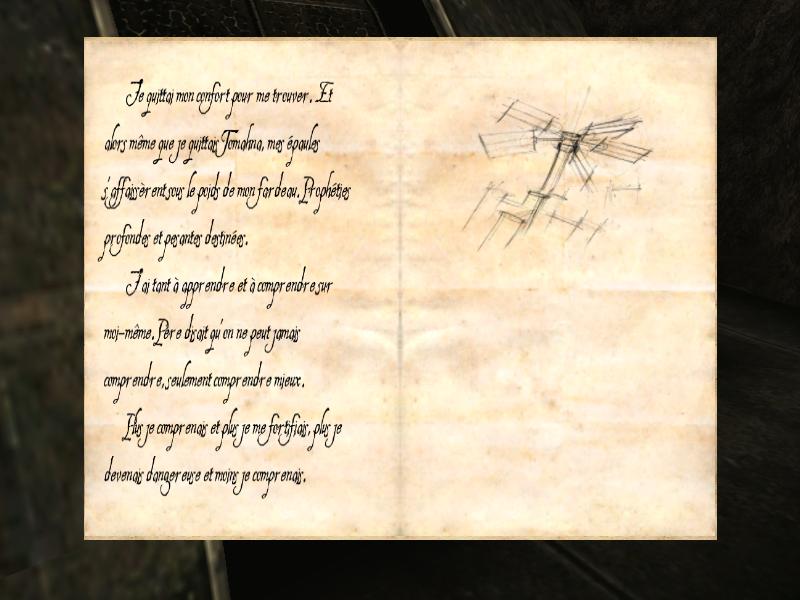 Je quittai mon confort pour me trouver. Et
alors même que je quittais Tomahna, mes épaules
s'affaissèrent sous le poids de mon fardeau. Prophéties
profondes et pesantes destinées.
J'ai tant à apprendre et à comprendre sur
moi-même. Père disait qu'on ne peut jamais
comprendre, seulement comprendre mieux.
Plus je comprenais et plus je me fortifiais, plus je
devenais dangereuse et moins je comprenais.